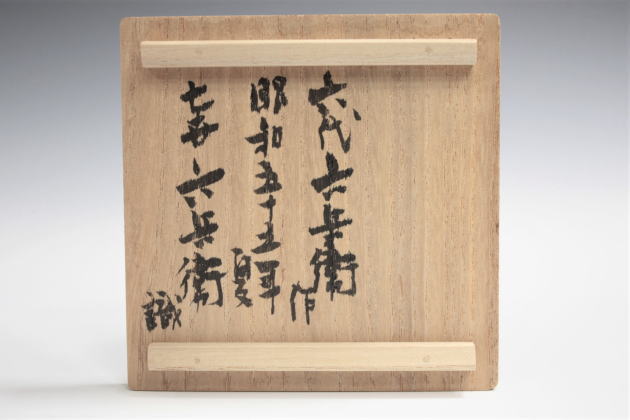 六代 六兵衛 作
昭和五十五年 夏
七世 六兵衛 識